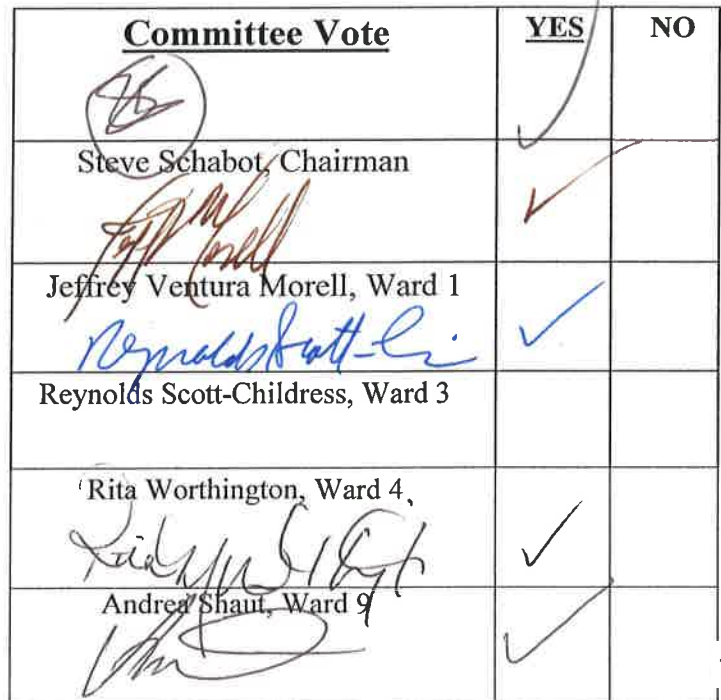 Committee Vote YES NO
Steve Schabot, Chairman
Jeff Morell
Jeffrey Ventura Morell, Ward 1
Reynolds Scott-
Reynolds Scott-Childress, Ward 3
Rita Worthington, Ward 4
Andrea Shaut, Ward 9